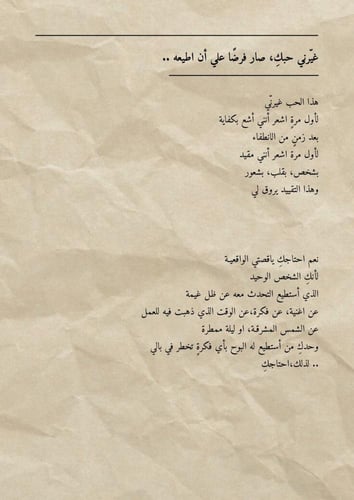 غيّرني حبكِ، صار فرضًا علي أن اطيعه ..
هذا الحب غيرنّي
لأول مرةٍ اشعر أنني أشع بكفاية
بعد زمنٍ من الانطفاء
لأول مرة اشعر أنني مقيد
بشخص، بقلب، بشعور
وهذا التقييد يروق لي
نعم احتاجكِ ياقصتي الواقعية
لأنك الشخص الوحيد
الذي أستطيع التحدث معه عن ظل غيمة
عن اغنية، عن فكرة،عن الوقت الذي ذهبت فيه للعمل
عن الشمس المشرقة، او ليلة ممطرة
وحدكِ من أستطيع له البوح بأي فكرةٍ تخطر في بالي
.. لذلك،احتاجكِ